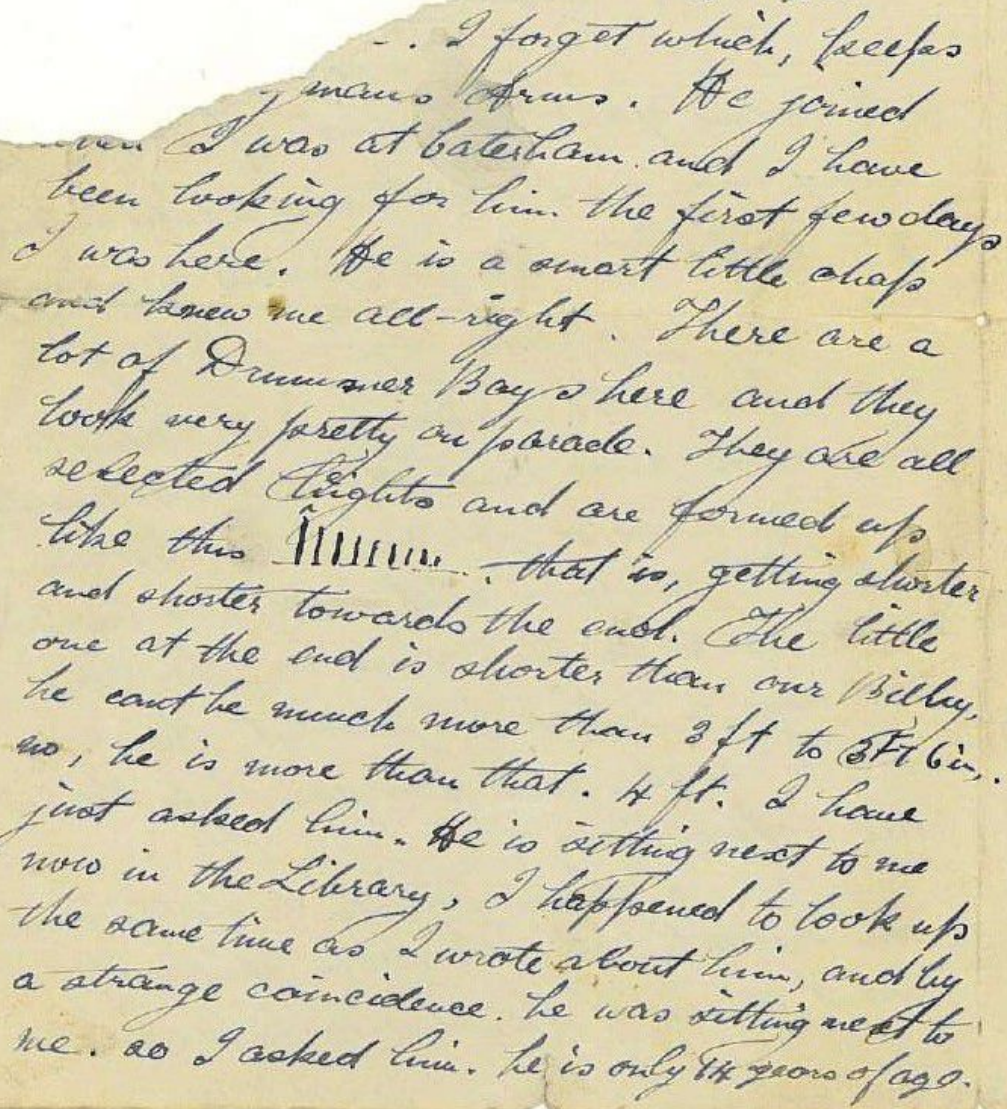 I forget which, keeps
mans Arms. He joined
I was at Caterham and I have
been looking for him the first few days
I was here. He is a smart little chap
and knew me all-right. There are a
lot of Drummer Boys here and they
look very pretty on parade. They are all
selected heights and are formed up
like this . that is, getting shorter
and shorter towards the end. The little
one at the end is shorter than our Billy,
he cant be much more than 3 ft to 3 Ft 6 in,.
no, he is more than that. 4 ft. I have
just asked him. He is sitting next to me
now in the Library, I happened to look up
the same time as I wrote about him, and by
a strange coincidence. he was sitting next to
me. so I asked him. he is only 14 years of age.